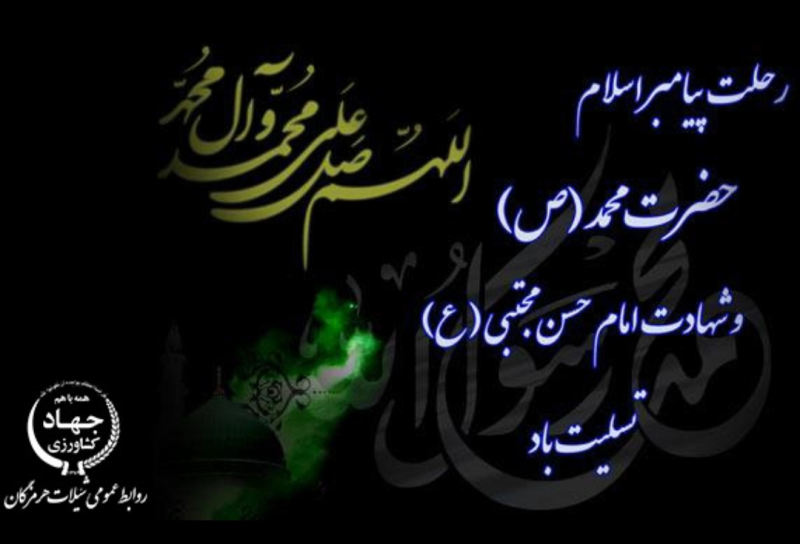 رحلت پیامبر اسلام
حضرت محمد (ص)
و شهادت امام حسن مجتبی (ع)
تسلیت باد
اللهم صل علی محمد و آل محمد
محمد رسول الله
همه با هم
جهاد
کشاورزی
روابط عمومی شیلات هرمزگان